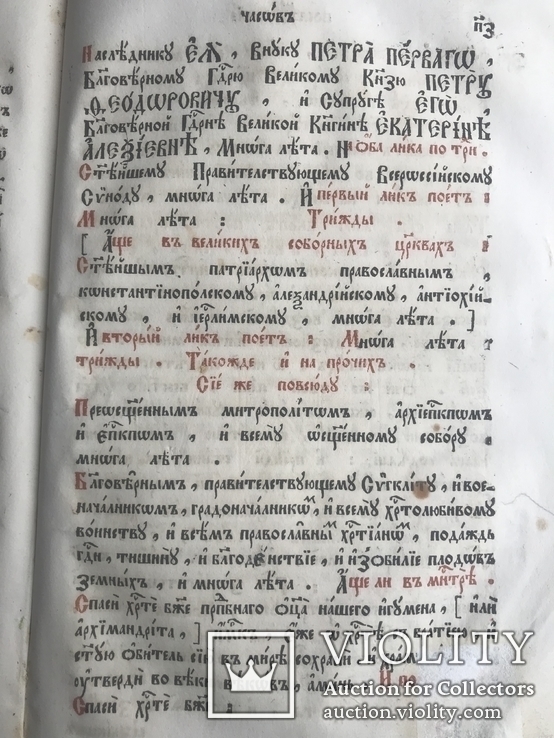 часѡ́въ
пз
Наслѣднику ЕѦ̀, Внуку ПЕТРА̀ ПЕ́РВАГѠ,
Бл҃говѣ́рному Гд҃рю Вели́кому Кн҃зю ПЕТРУ̀
Ѳ҆ЕѠ́ДѠРОВИЧУ, и҆ Супру́гѣ Е҆ГѠ̀
Бл҃говѣ́рной Гд҃рнѣ Вели́кой Кн҃ги́нѣ Е҆КАТЕРІ́НѢ
А҆ЛЕѮІ́ЕВНѢ, Мнѡ́га лѣ́та. Ѻ҆́ба ли́ка по три́.
Ст҃ѣ́йшему Прави́телствующему Всеросси́йскому
Сѷно́ду, мнѡ́га лѣ́та. И҆ пе́рвый ли́къ пое́тъ:
Мнѡ́га лѣ́та: Три́жды.
[ А҆́ще въ вели́кихъ собо́рныхъ цр҃квахъ:
Ст҃ѣ́йшымъ патрїа́рхѡмъ правосла́внымъ,
кѡнстантїнопо́лскому, а҆леѯандрі́йскому, а҆нтїохі́й-
скому, и҆ і҆ер҃ли́мскому, мнѡ́га лѣ́та. ]
И҆ вторы́й ли́къ пое́тъ: Мнѡ́га лѣ́та
три́жды. Та́кожде и҆ на про́чихъ.
Сїе́ же повсю́ду:
Преѡсщ҃е́ннымъ митрополі́тѡмъ, а҆рхїеп҃кпѡмъ
и҆ е҆п҃кпѡмъ, и҆ всемꙋ̀ ѡ҆сщ҃е́нному собо́ру
мнѡ́га лѣ́та.
Бл҃говѣ́рнымъ, прави́телствующему Сѷгклі́ту, и҆ вое-
нача́лникѡмъ, градонача́лникѡмъ, и҆ всему̀ хр҃толюби́вому
во́инству, и҆ всѣ́мъ правосла́внымъ хр҃тїа́нѡмъ, пода́ждь
гд҃и, тишину̀, и҆ бл҃годе́нствїе, и҆ и҆зоби́лїе плодѡ́въ
земны́хъ, и҆ мнѡ́га лѣ́та. А҆́ще ли въ мн҃трѣ̀.
Спасѝ хр҃тѐ бж҃е прпⷣбнаго ѻ҆ц҃а̀ на́шего и҆гу́мена, [ и҆лѝ
а҆рхїмандрі́та, ]
ст҃у́ю ѻ҆би́тель сїю̀ въ ми́рѣ сохранѝ
ѹ҆твердѝ во вѣ́ки
Спасѝ хр҃тѐ бж҃е:
VIOLITY
Auction for Collectors
auction.violity.com